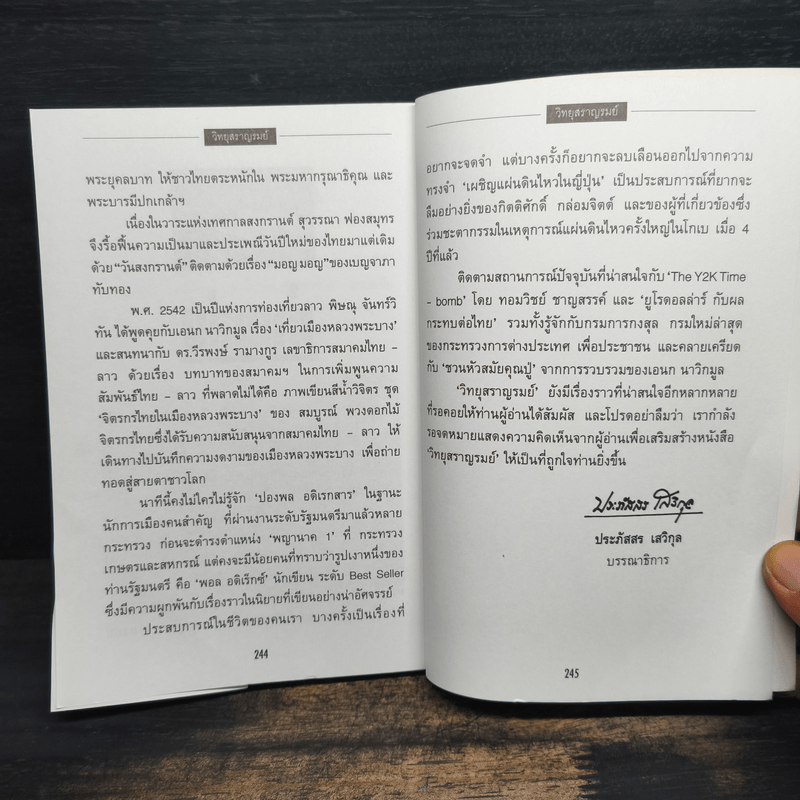 วิทยุสราญรมย์
พระยุคลบาท ให้ชาวไทยตระหนักใน พระมหากรุณาธิคุณ และ
พระบารมีปกเกล้าฯ
เนื่องในวาระแห่งเทศกาลสงกรานต์ สุวรรณา ฟองสมุทร
จึงรื้อฟื้นความเป็นมาและประเพณีวันปีใหม่ของไทยมาแต่เดิม
ด้วย "วันสงกรานต์" ติดตามด้วยเรื่อง "มอญ มอญ" ของเบญจาภา
ทับทอง
พ.ศ. 2542 เป็นปีแห่งการท่องเที่ยวลาว พิษณุ จันทร์วิ
ทัน ได้พูดคุยกับเอนก นาวิกมูล เรื่อง 'เที่ยวเมืองหลวงพระบาง'
และสนทนากับ ดร.วีรพงษ์ รามางกูร เลขาธิการสมาคมไทย –
ลาว ด้วยเรื่อง บทบาทของสมาคมฯ ในการเพิ่มพูนความ
สัมพันธ์ไทย – ลาว ที่พลาดไม่ได้คือ ภาพเขียนสีน้ำวิจิตร ชุด
'จิตรกรไทยในเมืองหลวงพระบาง' ของ สมบูรณ์ พวงดอกไม้
จิตรกรไทยซึ่งได้รับความสนับสนุนจากสมาคมไทย – ลาว ให้
เดินทางไปบันทึกความงดงามของเมืองหลวงพระบาง เพื่อถ่าย
ทอดสู่สายตาชาวโลก
นาทีนี้คงไม่ใครไม่รู้จัก 'ปองพล อดิเรกสาร' ในฐานะ
นักการเมืองคนสำคัญ ที่ผ่านงานระดับรัฐมนตรีมาแล้วหลาย
กระทรวง ก่อนจะดำรงตำแหน่ง 'พญานาค 1' ที่ กระทรวง
เกษตรและสหกรณ์ แต่คงจะมีน้อยคนที่ทราบว่ารูปเงาหนึ่งของ
ท่านรัฐมนตรี คือ 'พอล อดิเร็กซ์' นักเขียน ระดับ Best Seller
ซึ่งมีความผูกพันกับเรื่องราวในนิยายที่เขียนอย่างน่าอัศจรรย์
ประสบการณ์ในชีวิตของคนเรา บางครั้งเป็นเรื่องที่
244
วิทยุสราญรมย์
อยากจะจดจำ แต่บางครั้งก็อยากจะลบเลือนออกไปจากความ
ทรงจำ 'เผชิญแผ่นดินไหวในญี่ปุ่น' เป็นประสบการณ์ที่ยากจะ
ลืมอย่างยิ่งของกิตติศักดิ์ กล่อมจิตต์ และของผู้ที่เกี่ยวข้องซึ่ง
ร่วมชะตากรรมในเหตุการณ์แผ่นดินไหวครั้งใหญ่ในโกเบ เมื่อ 4
ปีที่แล้ว
ติดตามสถานการณ์ปัจจุบันที่น่าสนใจกับ 'The Y2K Time
- bomb' โดย ทอมวิชย์ ชาญสรรค์ และ 'ยูโรดอลล่าร์ กับผล
กระทบต่อไทย' รวมทั้งรู้จักกับกรมการกงสุล กรมใหม่ล่าสุด
ของกระทรวงการต่างประเทศ เพื่อประชาชน และคลายเครียด
กับ 'ชวนหัวสมัยคุณปู่' จากการรวบรวมของเอนก นาวิกมูล
'วิทยุสราญรมย์' ยังมีเรื่องราวที่น่าสนใจอีกหลากหลาย
ที่รอคอยให้ท่านผู้อ่านได้สัมผัส และโปรดอย่าลืมว่า เรากำลัง
รอจดหมายแสดงความคิดเห็นจากผู้อ่านเพื่อเสริมสร้างหนังสือ
'วิทยุสราญรมย์' ให้เป็นที่ถูกใจท่านยิ่งขึ้น
ประภัสสร เสวิกุล
ประภัสสร เสวิกุล
บรรณาธิการ
245